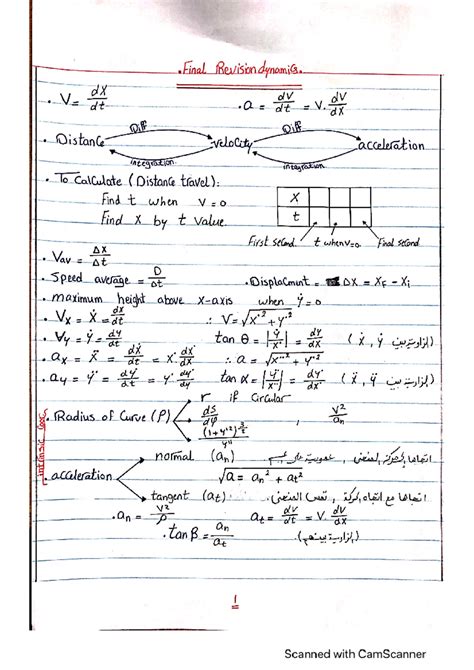 . Final Revision dynamics .
. V = dX/dt    . a = dV/dt = V. dV/dX
. Distance    Diff    VeloCity    Diff    acceleration
integration    integration
. To Calculate (Distance travel):
Find t when V=0
Find X by t Value.
X
t
First second    t when V=0.    Final second
. Vav = ΔX/Δt
. Speed average = D/Δt    . Displacmunt = ΔX = XF - Xi
. maximum height above x-axis when ẏ = 0
. Vx = Ẋ = dX/dt    ∴ V = √(X˙² + Y˙²)
. Vy = Ẏ = dY/dt    tan θ = |Ẏ/Ẋ| = dY/dX    (الزاوية بين Ẋ , Ẏ)
. ax = Ẍ = dẊ/dt = Ẋ dẊ/dX    ∴ a = √(X¨² + Y¨²)
. ay = Ÿ = dẎ/dt = Ẏ dẎ/dY    tan α = |Ÿ/Ẍ| =    (الزاوية بين Ẍ , Ÿ)
r if Circular
. Radius of Curve (ρ)    dS/dφ    , V²/an
(1+y'²)^(3/2) / y''
intrinsic Coor
normal (an)
. acceleration    √a = an² + at²
tangent (at)    اتجاها مع اتجاه الحركة , نفس المنحنى .
. an = V²/ρ    at = dV/dt = V. dV/dX
. tan β = an/at    (الزاوية بينهم)
1
Scanned with CamScanner